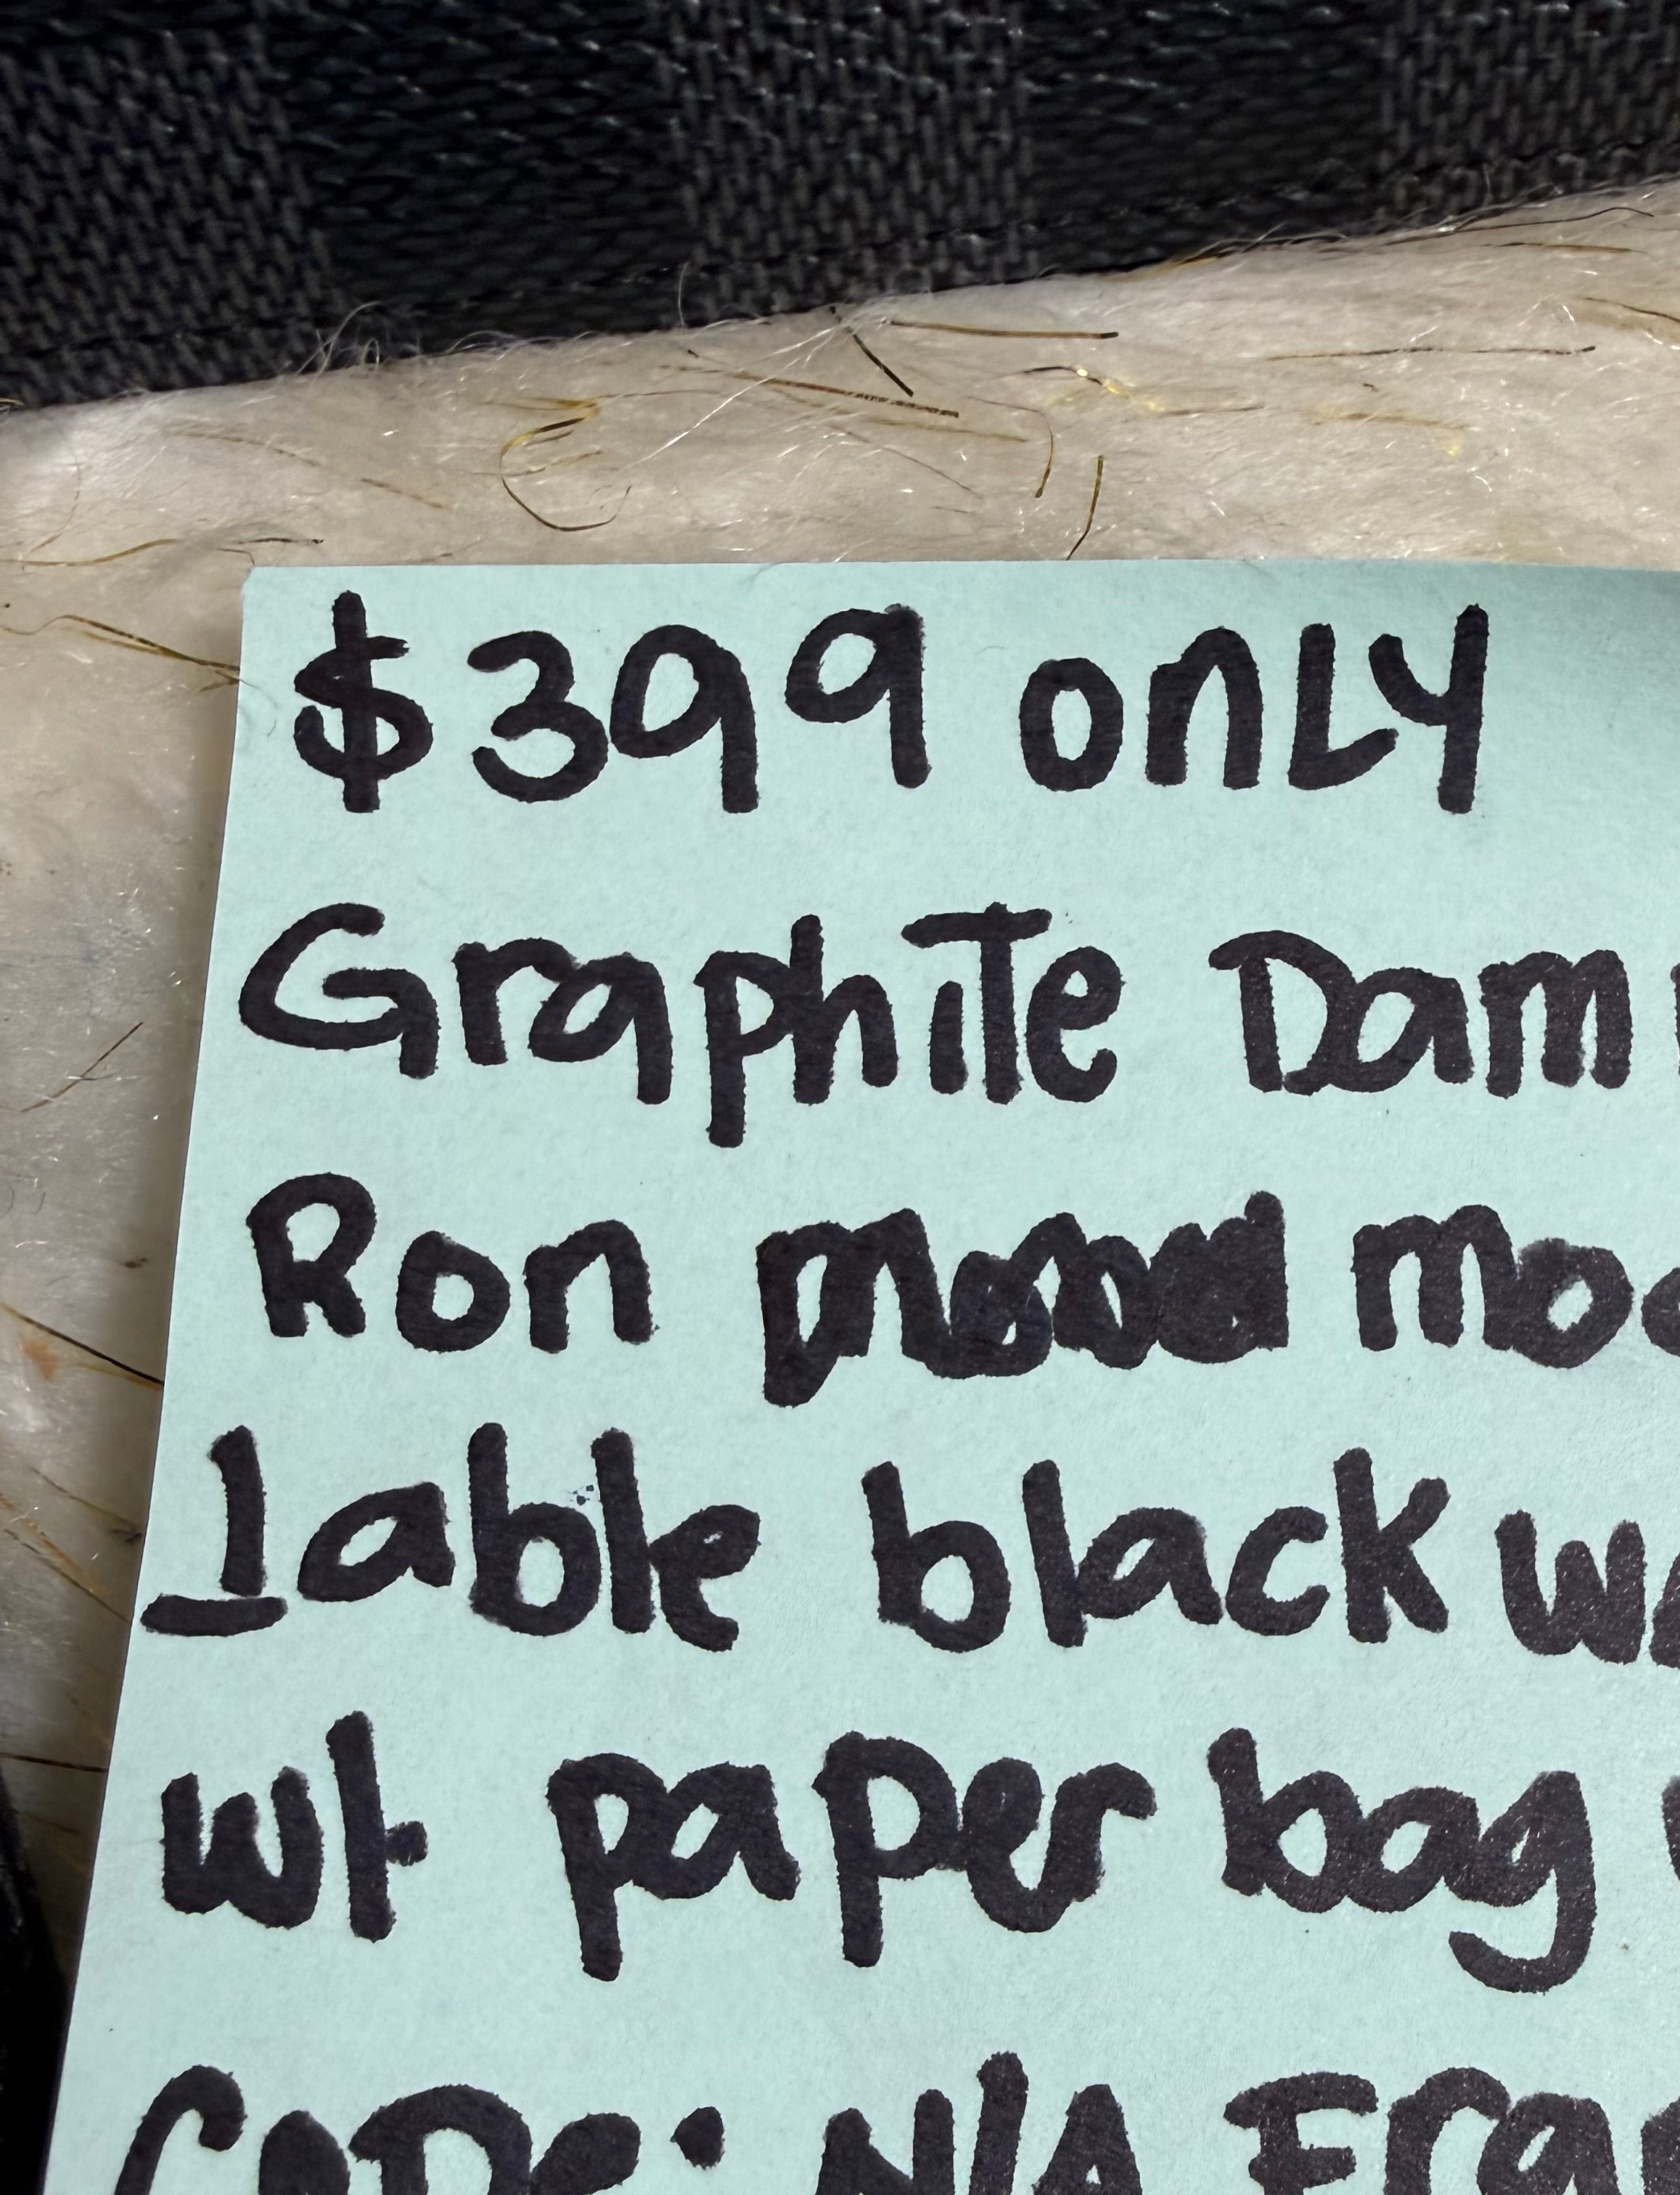 $399 only
Graphite Dam
Ron mo
1able black w
w/ paper bag
CODE: N/A Fra